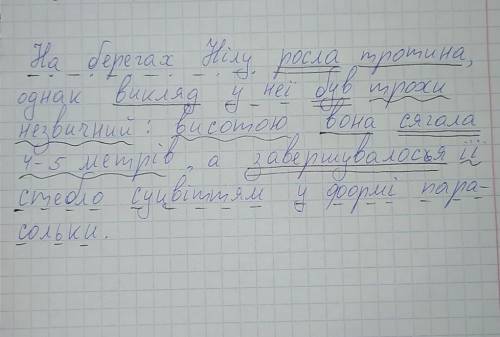 На берегах Нілу росла тротина,
однак викляд у неї був трохи
незвичний: висотою вона сягала
4-5 метрів, а завершувалосья її
стебло суцвіттям у формі пара-
сольки.